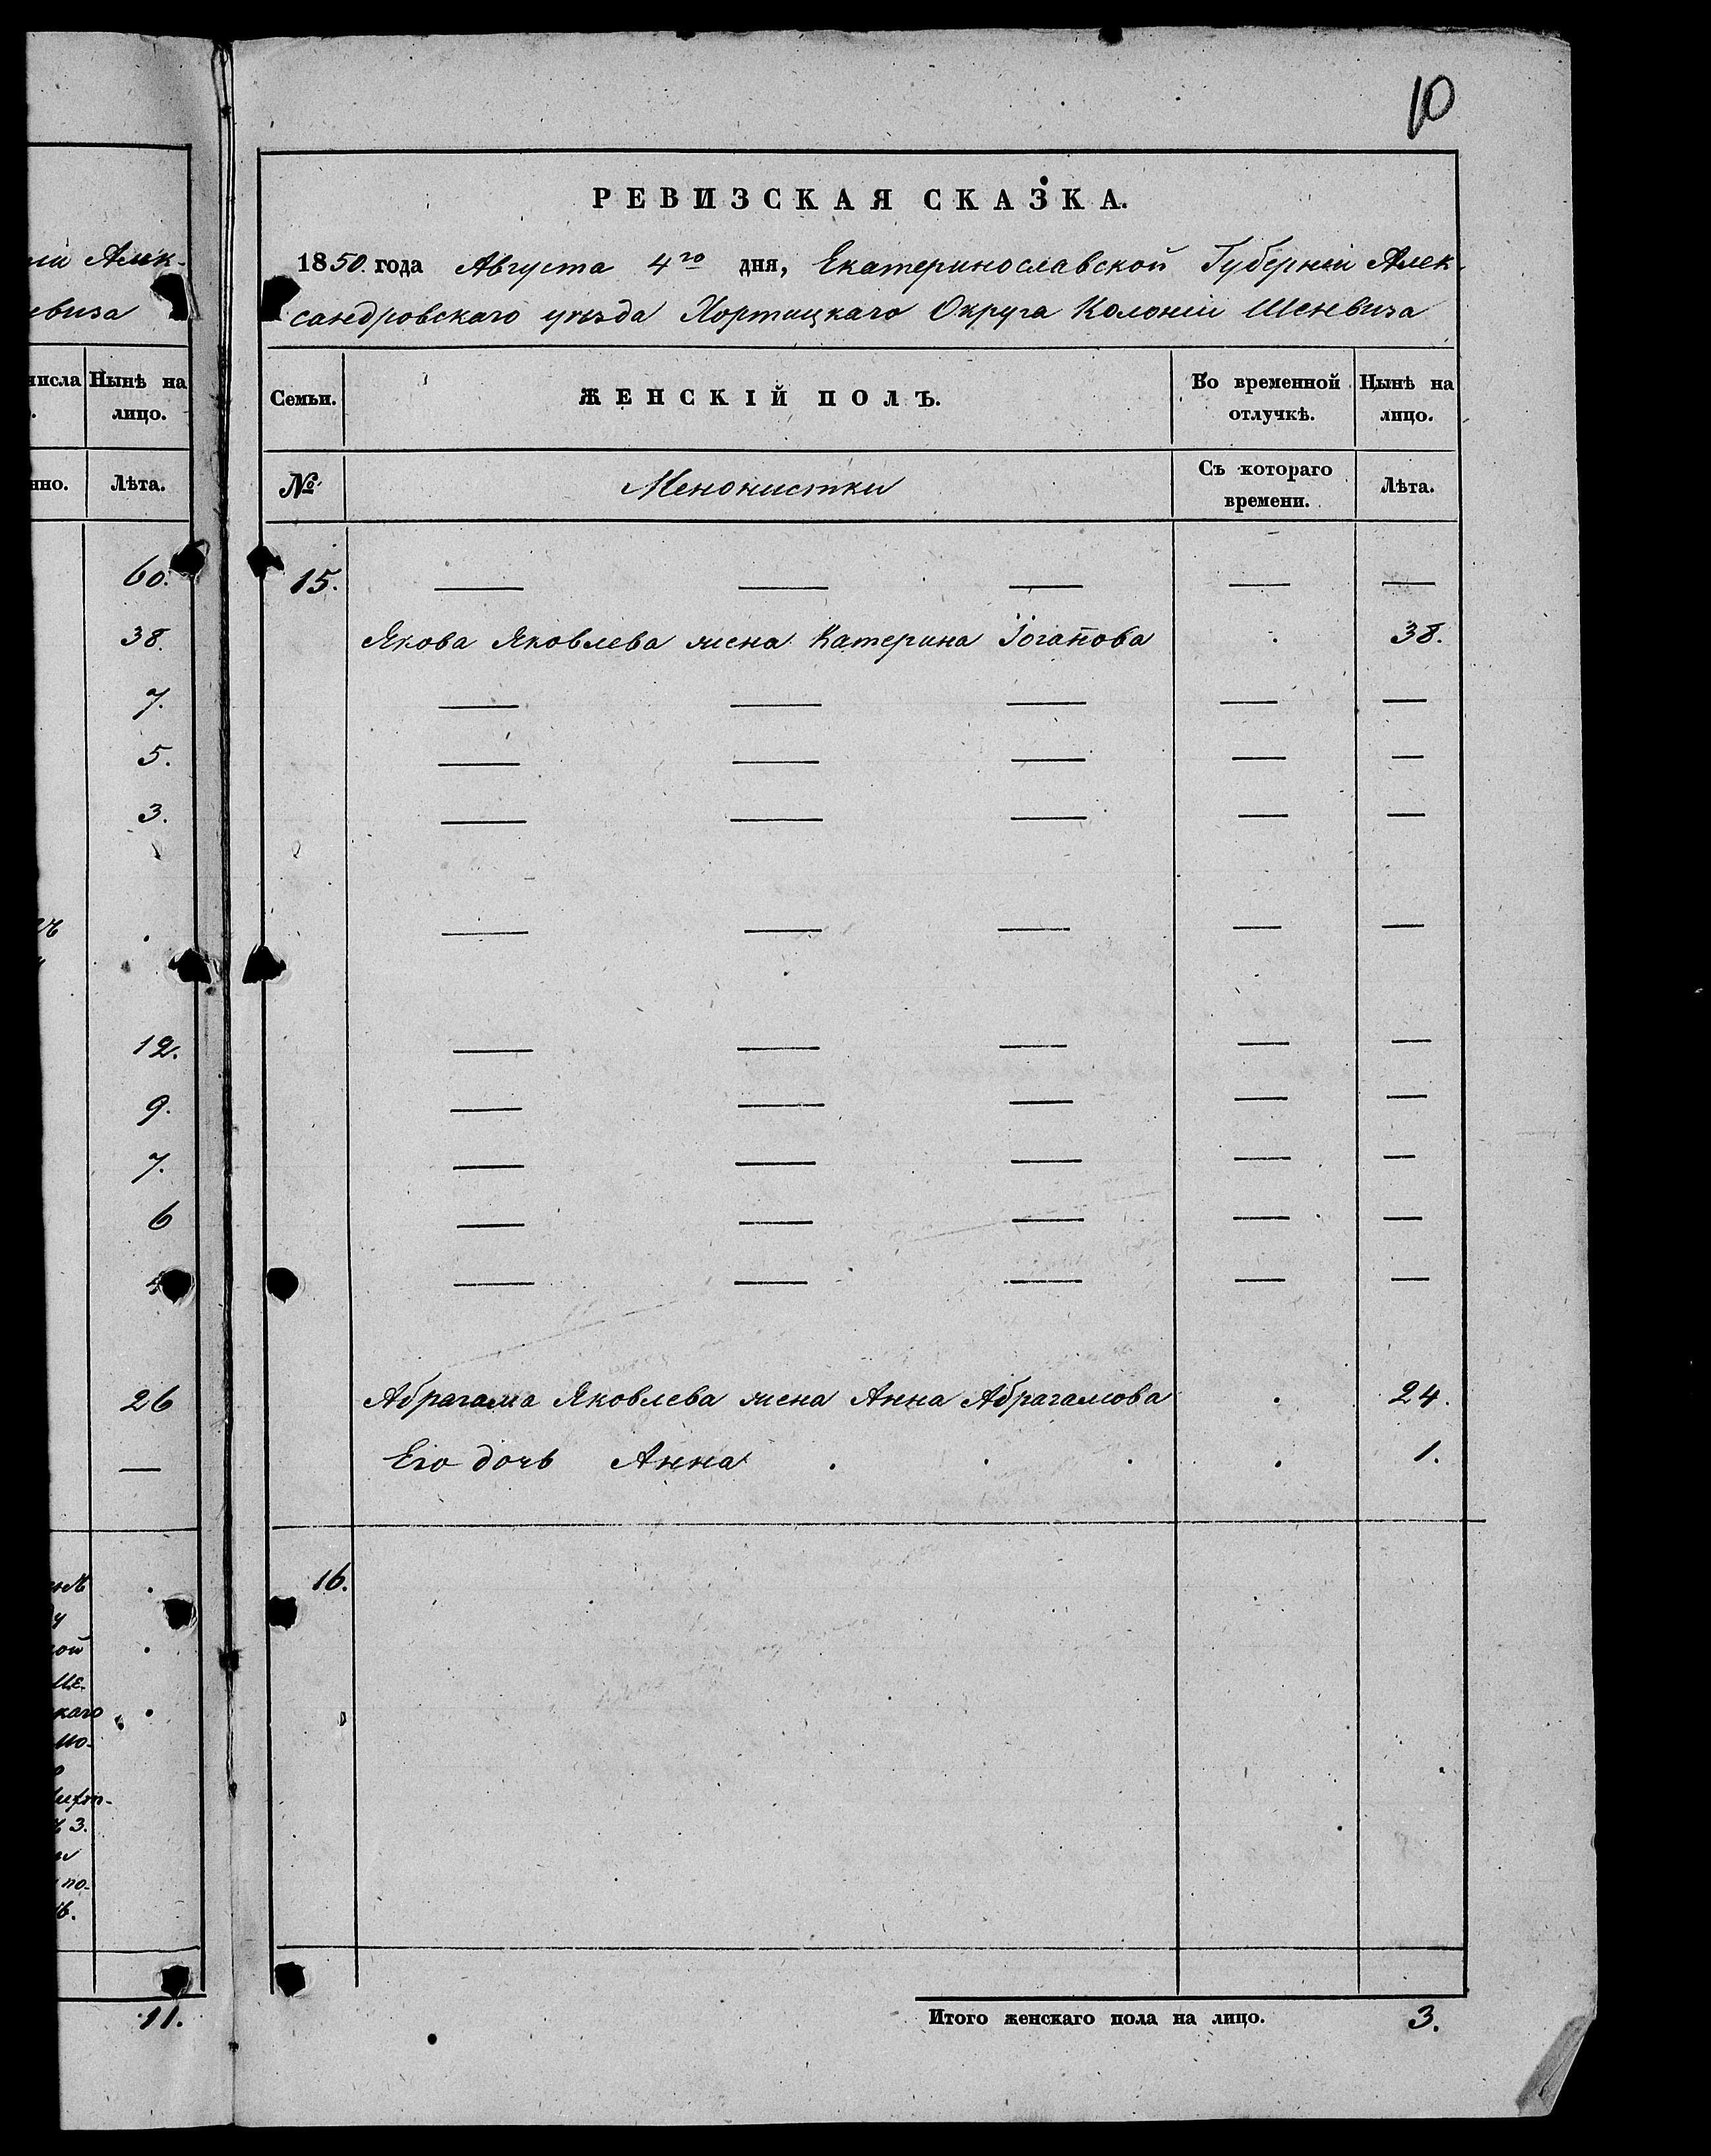 10
РЕВИЗСКАЯ СКАЗКА.
1850. года Августа 4го дня, Екатеринославской Губерніи Алек-
сандровскаго уѣзда Хортицкаго Округа Колоніи Шенвиза
Семьи. ЖЕНСКІЙ ПОЛЪ. Во временной отлучкѣ. Нынѣ на лицо.
№ Менонистки Съ котораго времени. Лѣта.
15. — — — — —
Якова Яковлева жена Катерина Іоганова . 38.
— — — — —
— — — — —
— — — — —
— — — — —
— — — — —
— — — — —
— — — — —
— — — — —
— — — — —
Абрагама Яковлева жена Анна Абрагамова . 24.
Его дочь Анна . . . . 1.
16.
Итого женскаго пола на лицо. 3.
Алек-
виза
числа Нынѣ на
лицо.
нно. Лѣта.
60.
38.
7.
5.
3.
12.
9.
7.
6
26
—
ой
каго
мо-
3.
по-
11.